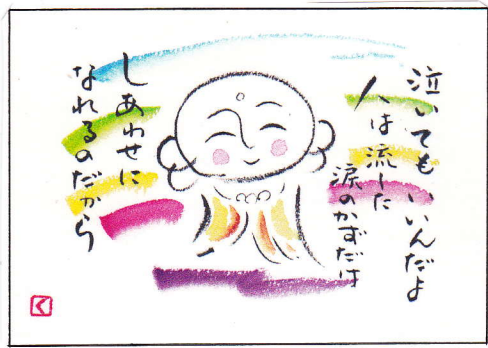 泣いてもいいんだよ
人は流した
涙のかずだけ
しあわせに
なれるのだから
く